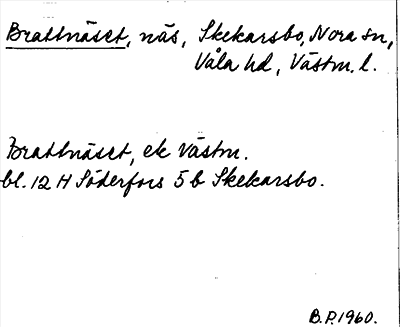 Brattnäset, näs, Skekarsbo, Nora sn,
Våla hd, Västm. l.
Brattnäset, ek Västm.
bl. 12 H Söderfors 5 b Skekarsbo.
B.P. 1960.